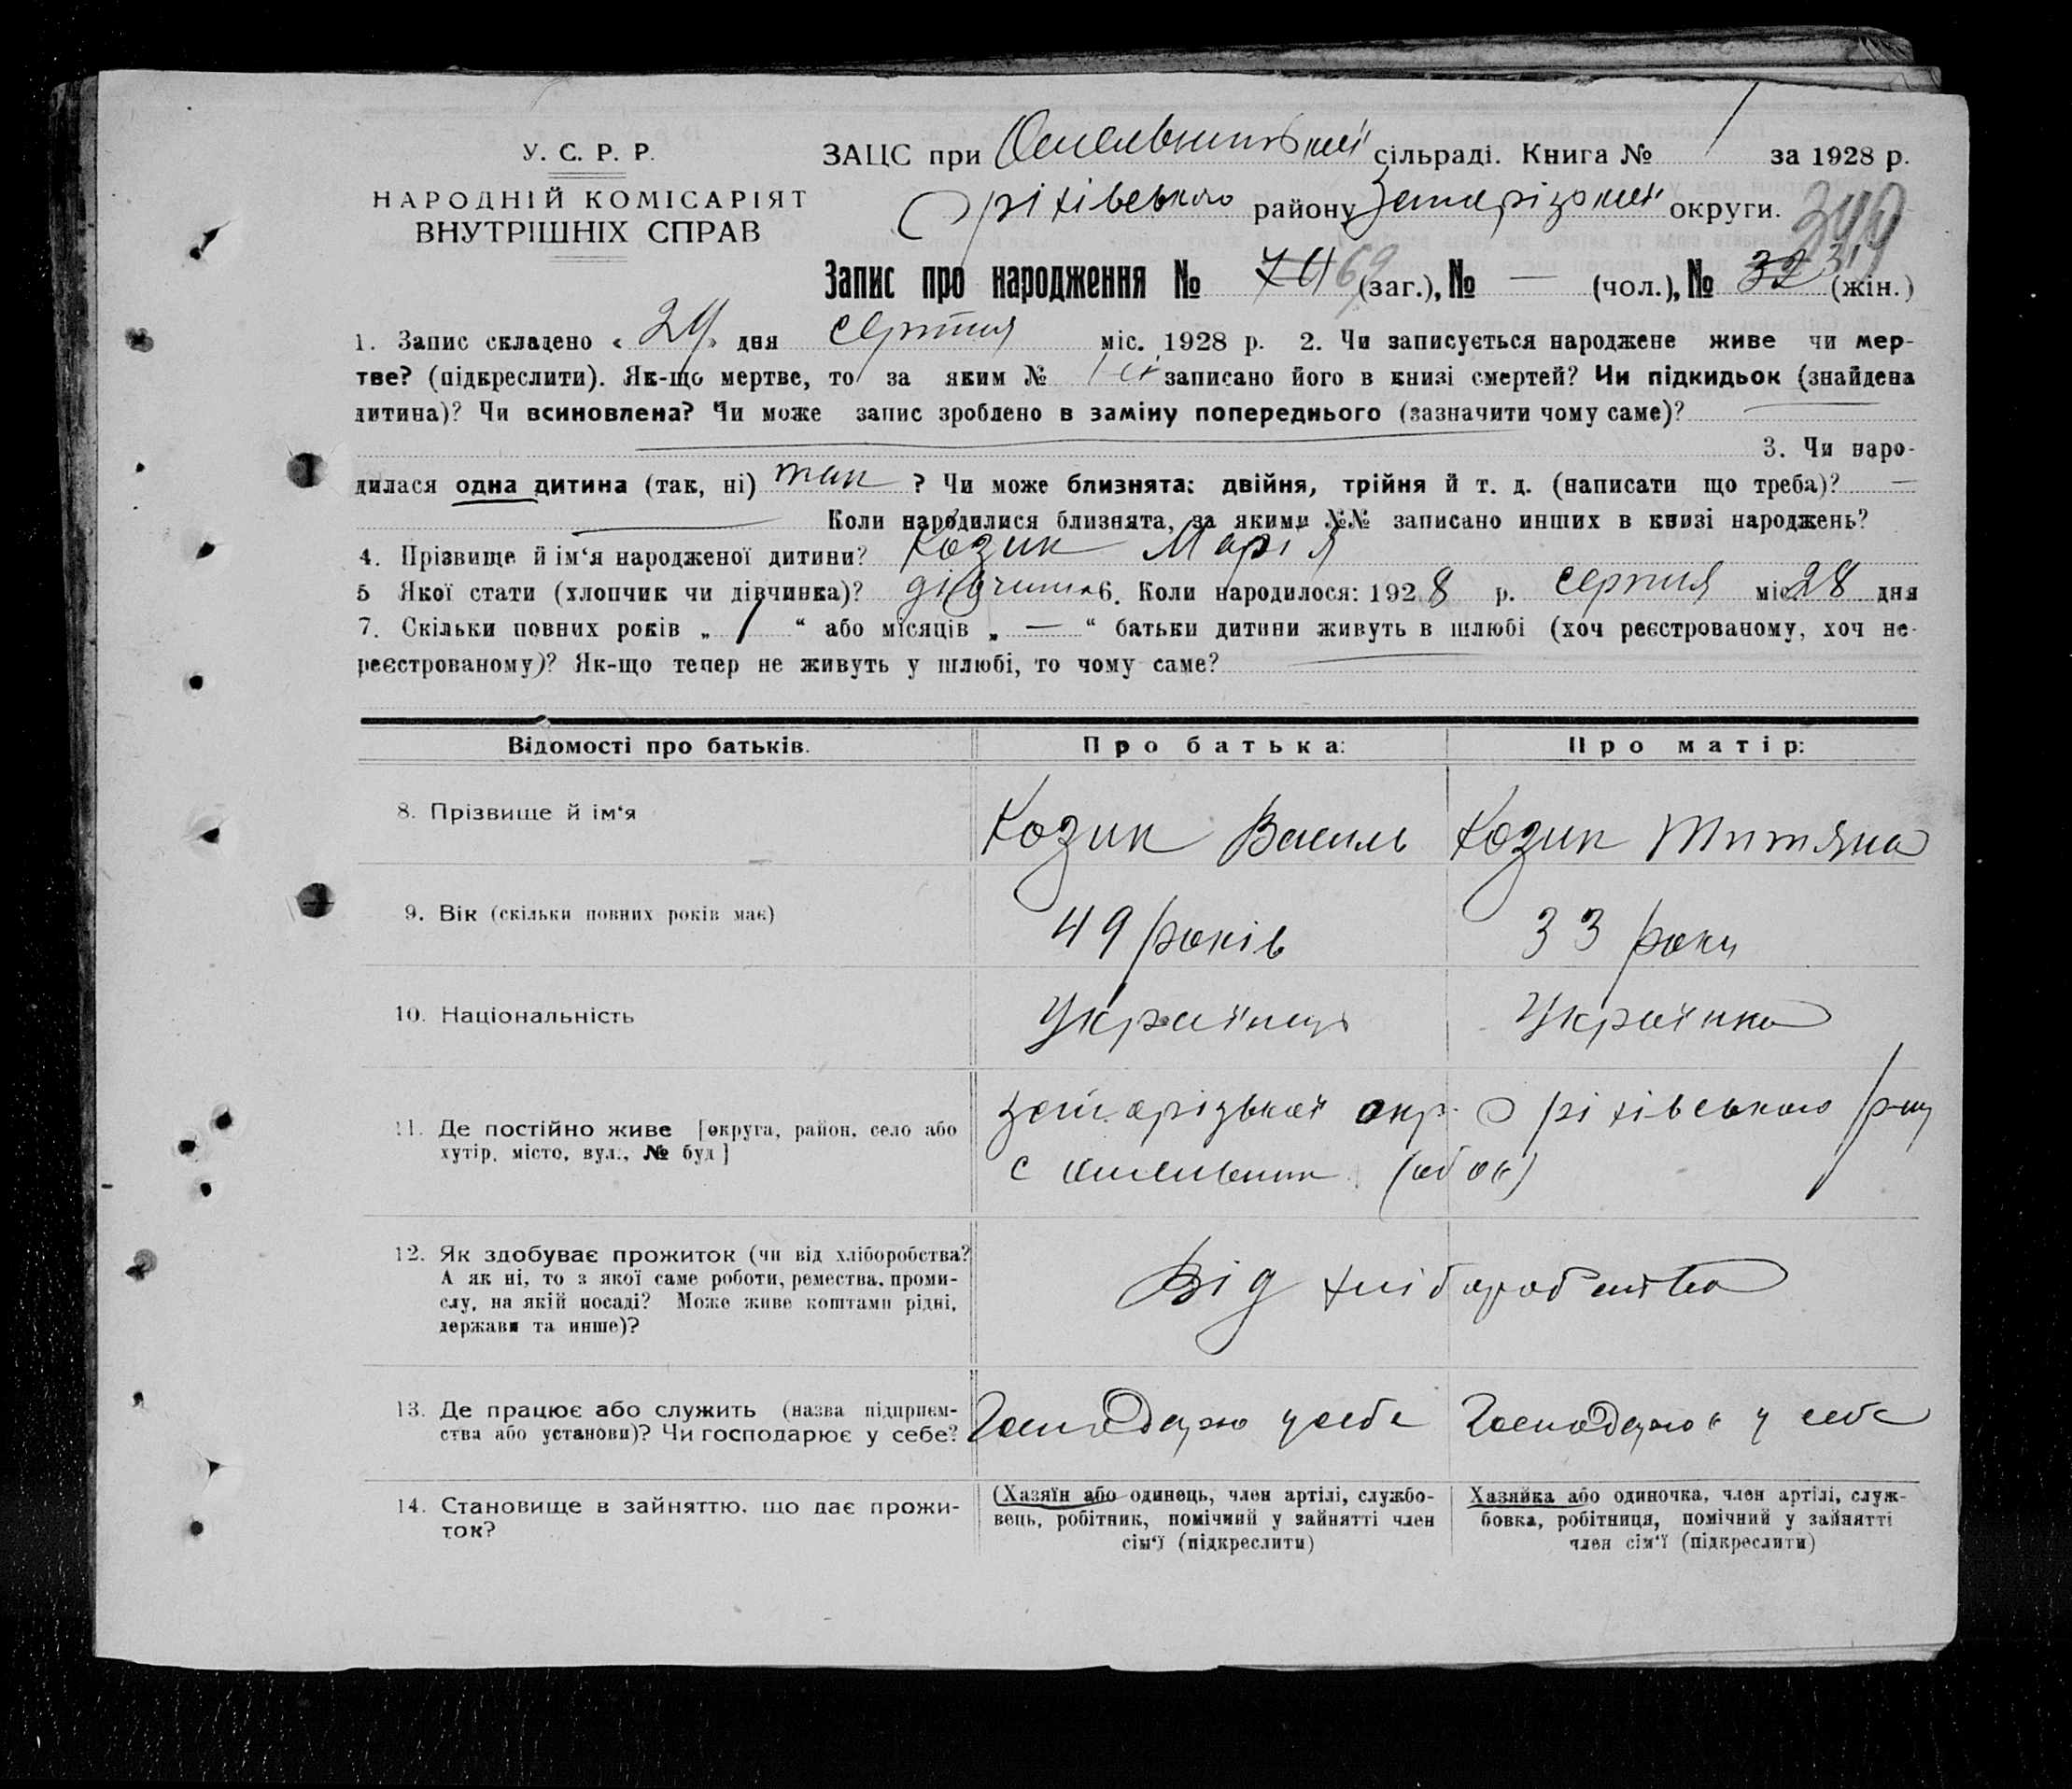 У. С. Р. Р.
НАРОДНІЙ КОМІСАРІЯТ
ВНУТРІШНІХ СПРАВ
ЗАЦС при Омельницькій сільраді. Книга № 1 за 1928 р.
Оріхівського району Запорізької округи.
340
Запис про народження № 70 69 (заг.), № — (чол.), № 32 31 (жін.)
1. Запис складено « 29 » дня серпня міс. 1928 р. 2. Чи записується народжене живе чи мер-
тве? (підкреслити). Як-що мертве, то за яким № записано його в книзі смертей? Чи підкидьок (знайдена
дитина)? Чи всиновлена? Чи може запис зроблено в заміну попереднього (зазначити чому саме)?
3. Чи наро-
дилася одна дитина (так, ні) так ? Чи може близнята: двійня, трійня й т. д. (написати що треба)? —
Коли народилися близнята, за якими №№ записано инших в книзі народжень?
4. Прізвище й ім‘я народженої дитини? Козик Марія
5 Якої стати (хлопчик чи дівчинка)? дівчина 6. Коли народилося: 1928 р. серпня міс. 28 дня
7. Скільки повних років „ 1 “ або місяців „ — “ батьки дитини живуть в шлюбі (хоч реєстрованому, хоч не-
реєстрованому)? Як-що тепер не живуть у шлюбі, то чому саме?
Відомості про батьків. Про батька: Про матір:
8. Прізвище й ім‘я Козик Василь Козик Титяна
9. Вік (скільки повних років має) 49 років 33 роки
10. Національність Українець Українка
11. Де постійно живе [округа, район, село або
хутір, місто, вул., № буд]
Запорізької окр. Оріхівського р-ну
с Омельник (обоє)
12. Як здобуває прожиток (чи від хліборобства?
А як ні, то з якої саме роботи, ремества, проми-
слу, на якій посаді? Може живе коштами рідні,
держави та инше)?
Від хліборобства
13. Де працює або служить (назва підприєм-
ства або установи)? Чи господарює у себе?
Господарює у себе Господарює у себе
14. Становище в зайняттю, що дає прожи-
ток?
(Хазяїн або одинець, член артілі, службо-
вець, робітник, помічний у зайнятті член
сім‘ї (підкреслити)
Хазяйка або одиночка, член артілі, служ-
бовка, робітниця, помічний у зайнятті
член сім‘ї (підкреслити)